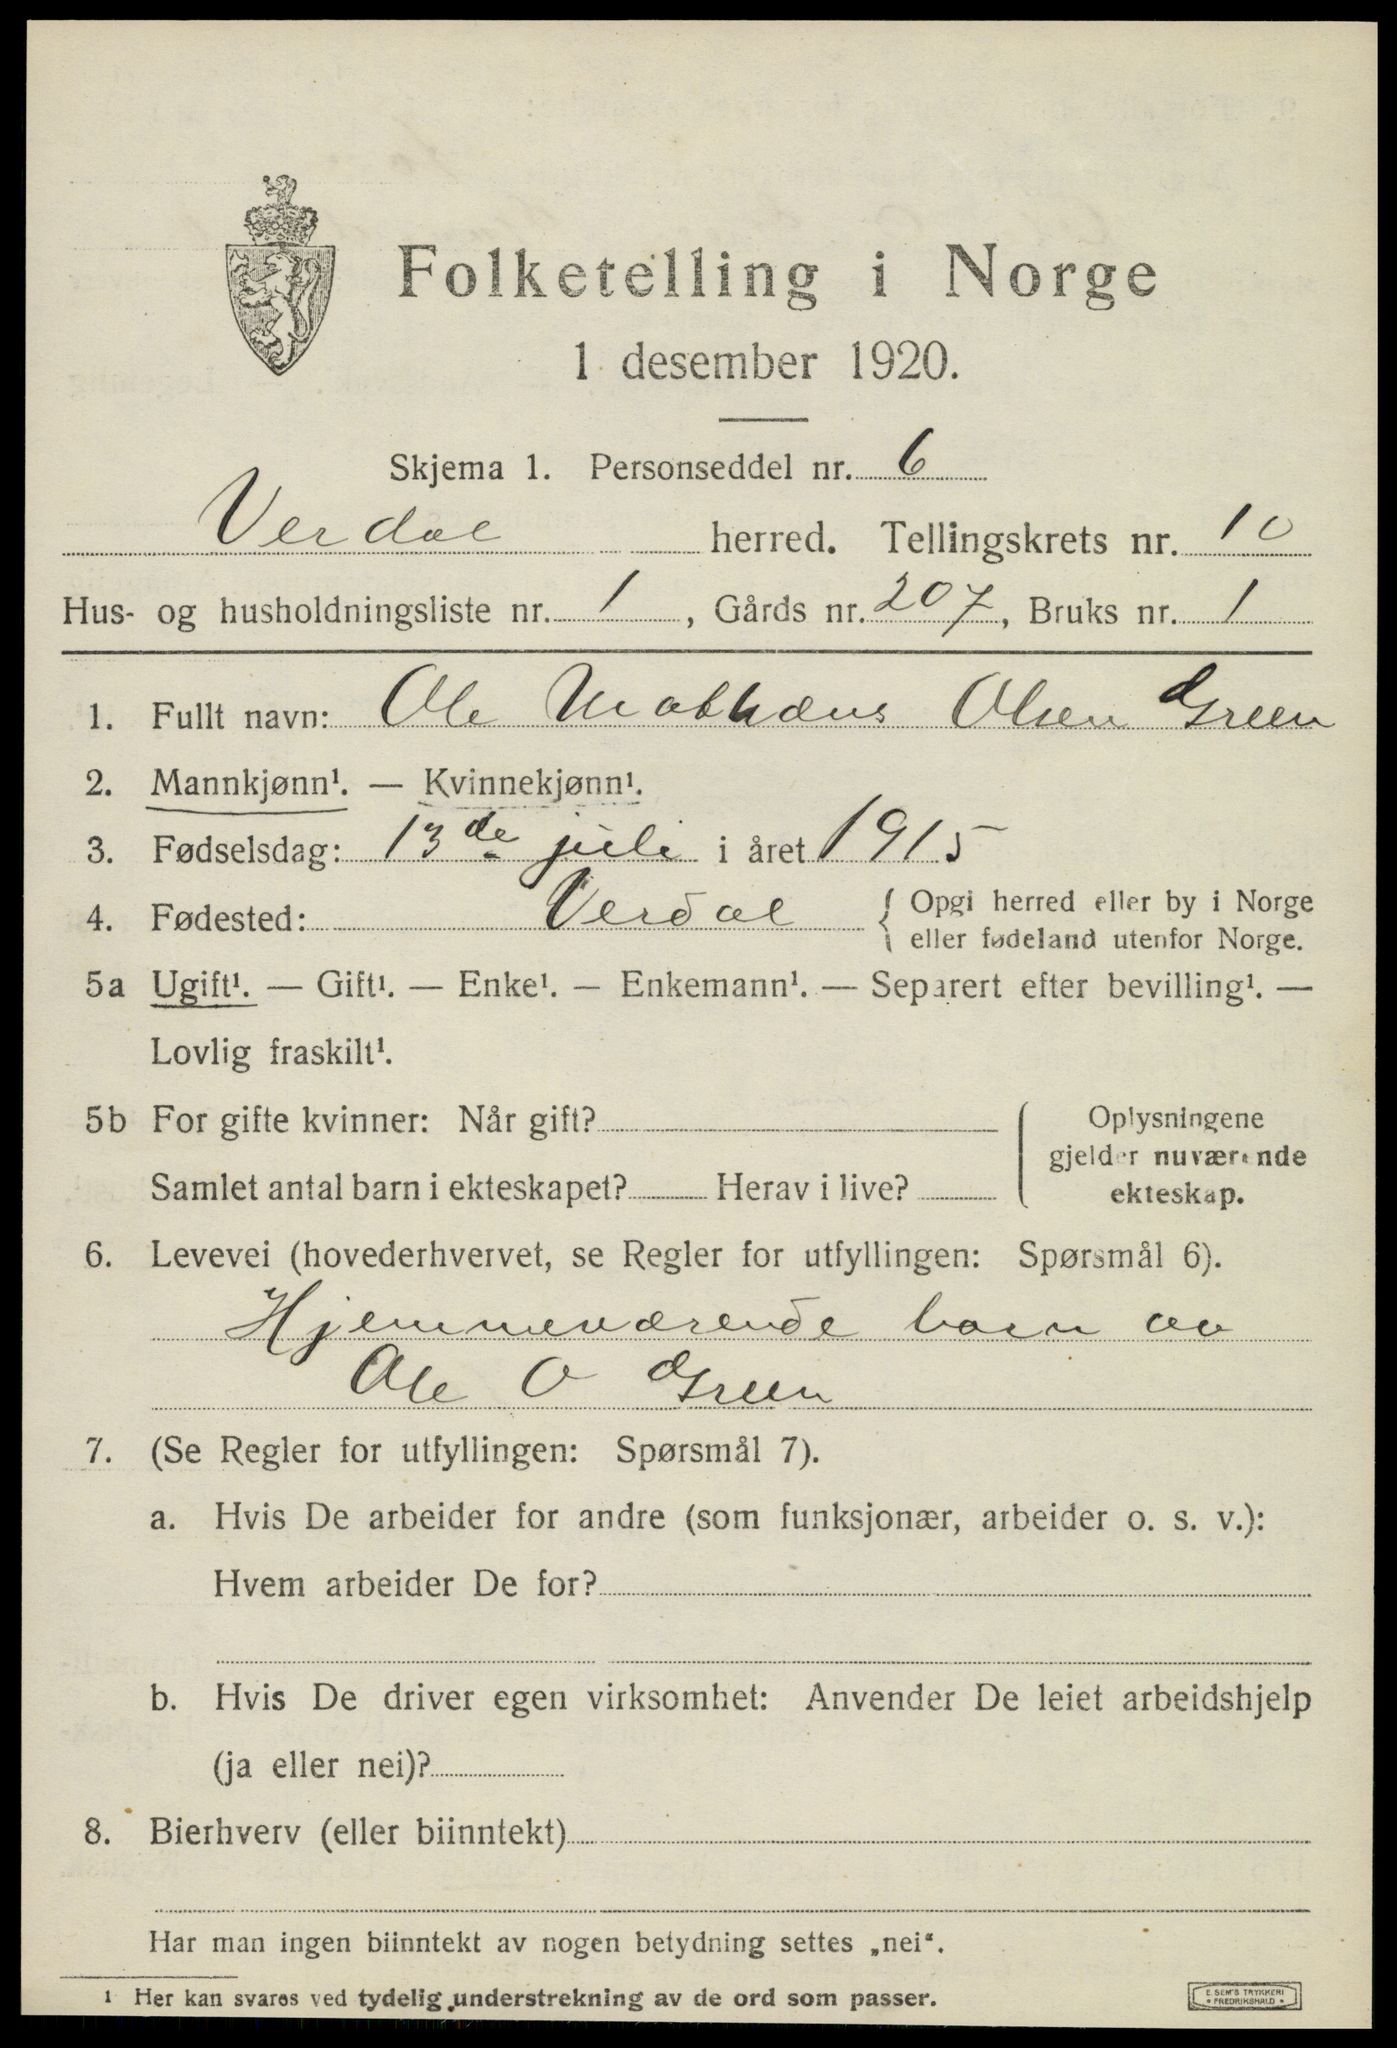 Folketelling i Norge
1 desember 1920.
Skjema 1. Personseddel nr. 6
Verdal herred. Tellingskrets nr. 10
Hus- og husholdningsliste nr. 1, Gårds nr. 207, Bruks nr. 1
1. Fullt navn: Ole Mathæus Olsen Green
2. Mannkjønn¹. — Kvinnekjønn¹.
3. Fødselsdag: 13de juli i året 1915
4. Fødested: Verdal { Opgi herred eller by i Norge
eller fødeland utenfor Norge.
5a Ugift¹. — Gift¹. — Enke¹. — Enkemann¹. — Separert efter bevilling¹. —
Lovlig fraskilt¹.
5b For gifte kvinner: Når gift? Oplysningene
gjelder nuværende
Samlet antal barn i ekteskapet? Herav i live? ekteskap.
6. Levevei (hovederhvervet, se Regler for utfyllingen: Spørsmål 6).
Hjemmeværende barn av
Ole O Green
7. (Se Regler for utfyllingen: Spørsmål 7).
a. Hvis De arbeider for andre (som funksjonær, arbeider o. s. v.):
Hvem arbeider De for?
b. Hvis De driver egen virksomhet: Anvender De leiet arbeidshjelp
(ja eller nei)?
8. Bierhverv (eller biinntekt)
Har man ingen biinntekt av nogen betydning settes „nei“.
1 Her kan svares ved tydelig understrekning av de ord som passer.
E. SEM'S TRYKKERI
• FREDRIKSHALD •